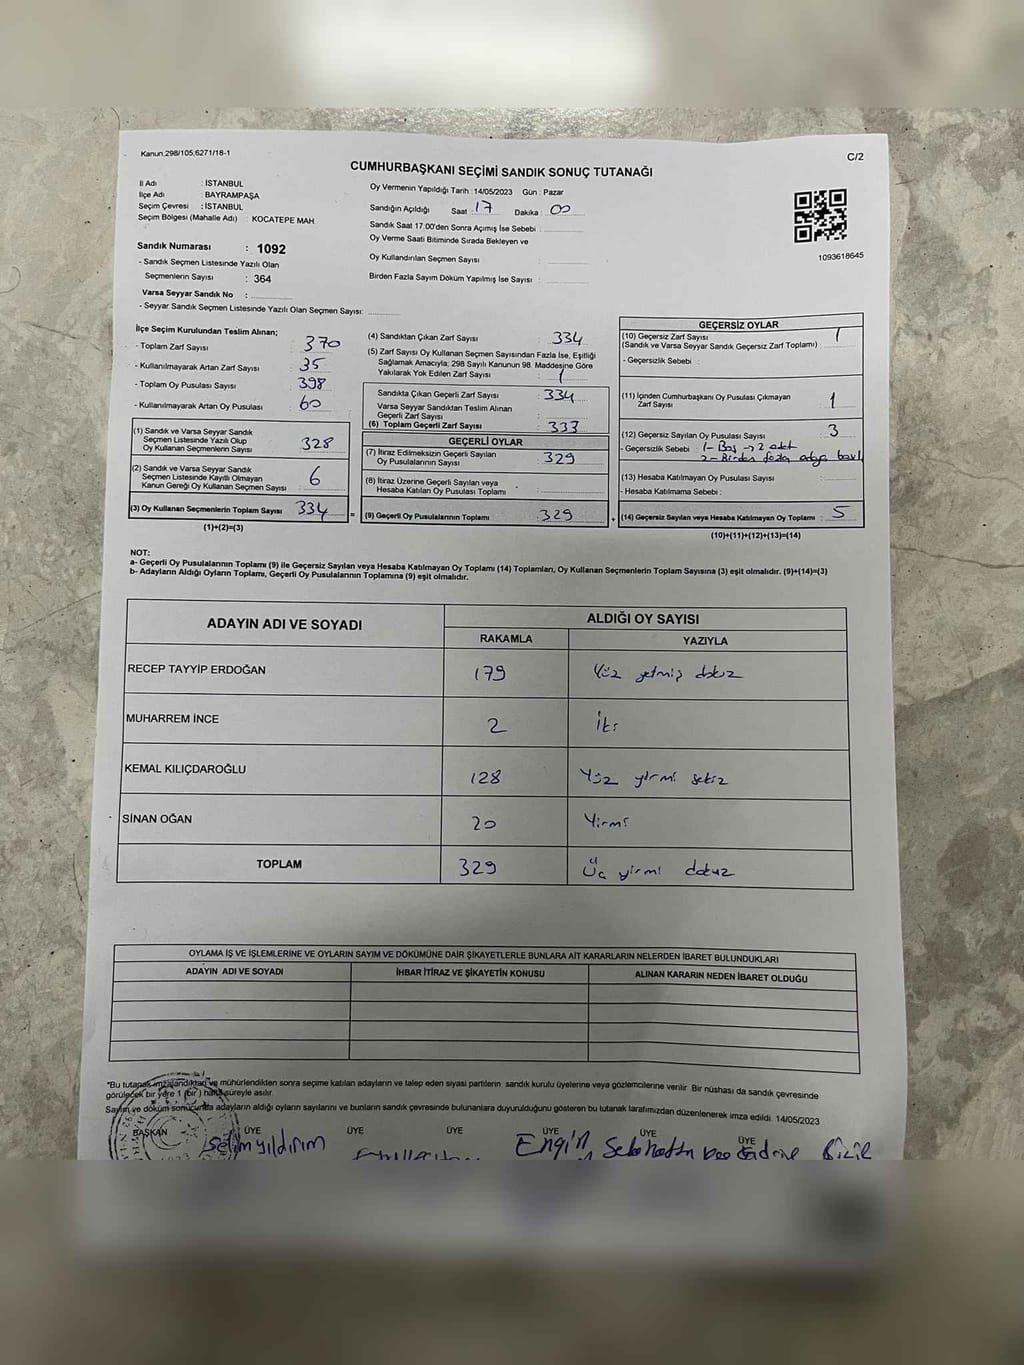 Kanun.298/105,6271/18-1
C/2
CUMHURBAŞKANI SEÇİMİ SANDIK SONUÇ TUTANAĞI
İl Adı : İSTANBUL
İlçe Adı : BAYRAMPAŞA
Seçim Çevresi : İSTANBUL
Seçim Bölgesi (Mahalle Adı) : KOCATEPE MAH.
Sandık Numarası : 1092
- Sandık Seçmen Listesinde Yazılı Olan
Seçmenlerin Sayısı : 364
Varsa Seyyar Sandık No :
- Seyyar Sandık Seçmen Listesinde Yazılı Olan Seçmen Sayısı:
Oy Vermenin Yapıldığı Tarih :14/05/2023 Gün : Pazar
Sandığın Açıldığı Saat : 17 Dakika : 00
Sandık Saat 17.00'den Sonra Açımış İse Sebebi :
Oy Verme Saati Bitiminde Sırada Bekleyen ve
Oy Kullandırılan Seçmen Sayısı :
Birden Fazla Sayım Döküm Yapılmış İse Sayısı :
1093618645
İlçe Seçim Kurulundan Teslim Alınan;
- Toplam Zarf Sayısı : 370
- Kullanılmayarak Artan Zarf Sayısı : 35
- Toplam Oy Pusulası Sayısı : 398
- Kullanılmayarak Artan Oy Pusulası : 60
(1) Sandık ve Varsa Seyyar Sandık
Seçmen Listesinde Yazılı Olup
Oy Kullanan Seçmenlerin Sayısı : 328
(2) Sandık ve Varsa Seyyar Sandık
Seçmen Listesinde Kayıtlı Olmayan
Kanun Gereği Oy Kullanan Seçmen Sayısı : 6
(3) Oy Kullanan Seçmenlerin Toplam Sayısı : 334
(1)+(2)=(3)
(4) Sandıktan Çıkan Zarf Sayısı : 334
(5) Zarf Sayısı Oy Kullanan Seçmen Sayısından Fazla İse, Eşitliği
Sağlamak Amacıyla; 298 Sayılı Kanunun 98. Maddesine Göre
Yakılarak Yok Edilen Zarf Sayısı :
Sandıkta Çıkan Geçerli Zarf Sayısı : 334
Varsa Seyyar Sandıktan Teslim Alınan
Geçerli Zarf Sayısı :
(6) Toplam Geçerli Zarf Sayısı : 333
GEÇERLİ OYLAR
(7) İtiraz Edilmeksizin Geçerli Sayılan
Oy Pusulalarının Sayısı : 329
(8) İtiraz Üzerine Geçerli Sayılan veya
Hesaba Katılan Oy Pusulası Toplamı :
= (9) Geçerli Oy Pusulalarının Toplamı : 329 +
GEÇERSİZ OYLAR
(10) Geçersiz Zarf Sayısı : 1
(Sandık ve Varsa Seyyar Sandık Geçersiz Zarf Toplamı)
- Geçersizlik Sebebi :
(11) İçinden Cumhurbaşkanı Oy Pusulası Çıkmayan
Zarf Sayısı : 1
(12) Geçersiz Sayılan Oy Pusulası Sayısı : 3
- Geçersizlik Sebebi : 1- Boş → 2 adet
2- Birden fazla
(13) Hesaba Katılmayan Oy Pusulası Sayısı :
- Hesaba Katılmama Sebebi :
(14) Geçersiz Sayılan veya Hesaba Katılmayan Oy Toplamı : 5
(10)+(11)+(12)+(13)=(14)
NOT:
a- Geçerli Oy Pusulalarının Toplamı (9) ile Geçersiz Sayılan veya Hesaba Katılmayan Oy Toplamı (14) Toplamları, Oy Kullanan Seçmenlerin Toplam Sayısına (3) eşit olmalıdır. (9)+(14)=(3)
b- Adayların Aldığı Oyların Toplamı, Geçerli Oy Pusulalarının Toplamına (9) eşit olmalıdır.
ADAYIN ADI VE SOYADI
ALDIĞI OY SAYISI
RAKAMLA YAZIYLA
RECEP TAYYİP ERDOĞAN 179 Yüz yetmiş dokuz
MUHARREM İNCE 2 İki
KEMAL KILIÇDAROĞLU 128 Yüz yirmi sekiz
SİNAN OĞAN 20 Yirmi
TOPLAM 329 Üç yirmi dokuz
OYLAMA İŞ VE İŞLEMLERİNE VE OYLARIN SAYIM VE DÖKÜMÜNE DAİR ŞİKAYETLERLE BUNLARA AİT KARARLARIN NELERDEN İBARET BULUNDUKLARI
ADAYIN ADI VE SOYADI İHBAR İTİRAZ VE ŞİKAYETİN KONUSU ALINAN KARARIN NEDEN İBARET OLDUĞU
*Bu tutanak imzalandıktan ve mühürlendikten sonra seçime katılan adayların ve talep eden siyasi partilerin sandık kurulu üyelerine veya gözlemcilerine verilir. Bir nüshası da sandık çevresinde
görülecek bir yere 1 (bir) hafta süreyle asılır.
Sayım ve döküm sonucunda adayların aldığı oyların sayılarını ve bunların sandık çevresinde bulunanlara duyurulduğunu gösteren bu tutanak tarafımızdan düzenlenerek imza edildi. 14/05/2023
BAŞKAN ÜYE ÜYE ÜYE ÜYE ÜYE ÜYE
Selim yıldırım Engin